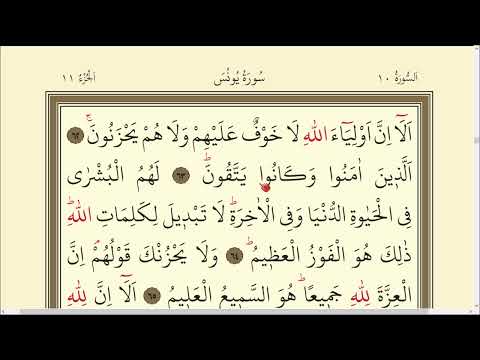 اَلسُّورَةُ ١٠ سُورَةُ يُونُسَ اَلْجُزْءُ ١١
اَلَٓا اِنَّ اَوْلِيَٓاءَ اللّٰهِ لَا خَوْفٌ عَلَيْهِمْ وَلَا هُمْ يَحْزَنُونَۚ ٦٢
اَلَّذ۪ينَ اٰمَنُوا وَكَانُوا يَتَّقُونَۜ ٦٣ لَهُمُ الْبُشْرٰى
فِي الْحَيٰوةِ الدُّنْيَا وَفِي الْاٰخِرَةِۜ لَا تَبْد۪يلَ لِكَلِمَاتِ اللّٰهِۜ
ذٰلِكَ هُوَ الْفَوْزُ الْعَظ۪يمُۜ ٦٤ وَلَا يَحْزُنْكَ قَوْلُهُمْۢ اِنَّ
الْعِزَّةَ لِلّٰهِ جَم۪يعًاۜ هُوَ السَّم۪يعُ الْعَل۪يمُ ٦٥ اَلَٓا اِنَّ لِلّٰهِ